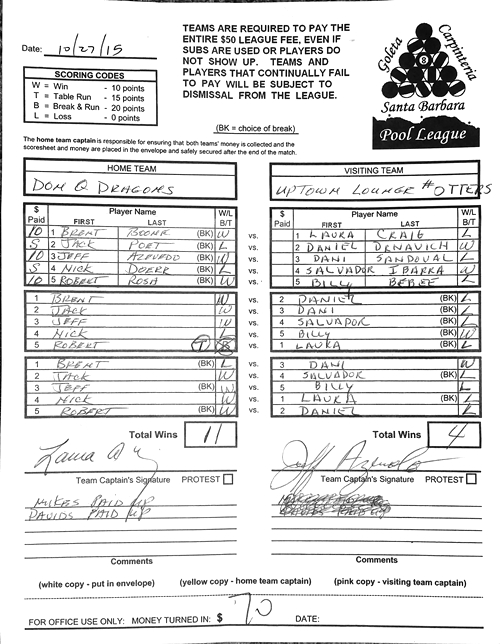 Date: 10/27/15
TEAMS ARE REQUIRED TO PAY THE
ENTIRE $50 LEAGUE FEE, EVEN IF
SUBS ARE USED OR PLAYERS DO
NOT SHOW UP. TEAMS AND
PLAYERS THAT CONTINUALLY FAIL
TO PAY WILL BE SUBJECT TO
DISMISSAL FROM THE LEAGUE.
Goleta
Carpinteria
8
Santa Barbara
Pool League
SCORING CODES
W = Win - 10 points
T = Table Run - 15 points
B = Break & Run - 20 points
L = Loss - 0 points
(BK = choice of break)
The home team captain is responsible for ensuring that both teams' money is collected and the
scoresheet and money are placed in the envelope and safely secured after the end of the match.
HOME TEAM VISITING TEAM
DOM Q DRAGONS UPTOWN LOUNGE # OTTERS
$ Paid Player Name FIRST LAST W/L B/T $ Paid Player Name FIRST LAST W/L B/T
10 1 BRENT (BK) W vs. 1 LAURA CRAIG L
5 2 JACK L vs. 2 DANIEL (BK) W
10 3 JEFF AZEVEDO (BK) W vs. 3 DANI SANDOVAL L
5 4 NICK L vs. 4 SALVADOR IBARRA (BK) W
10 5 ROBERT ROSA (BK) W vs. 5 BILLY L
1 BRENT W vs. 2 DANIEL (BK) L
2 JACK W vs. 3 DANI (BK) L
3 JEFF W vs. 4 SALVADOR (BK) L
4 NICK L vs. 5 BILLY (BK) W
5 ROBERT T (BK) vs. 1 LAURA L
1 BRENT (BK) L vs. 3 DANI W
2 JACK W vs. 4 SALVADOR (BK) L
3 JEFF (BK) W vs. 5 BILLY L
4 NICK W vs. 1 LAURA (BK) L
5 ROBERT (BK) W vs. 2 DANIEL L
Total Wins 11 Total Wins 4
Team Captain's Signature PROTEST Team Captain's Signature PROTEST
MIKES PAID UP
DAVIDS PAID UP
Comments Comments
(white copy - put in envelope) (yellow copy - home team captain) (pink copy - visiting team captain)
FOR OFFICE USE ONLY: MONEY TURNED IN: $ 70 DATE: